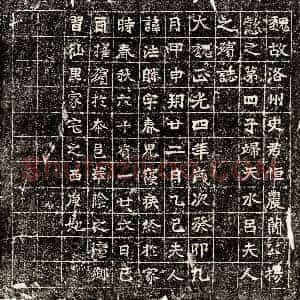 魏故洛州史君恒農簡公楊
懿之第四子婦天水呂夫人
之殯誌
大魏正光四年歲次癸卯九
月甲申朔廿二日乙巳夫人
諱法勝字春兒寢疾終於家
時春秋六十有廿六日己
酉權殯於本邑華陰之潼鄉
習仙里家宅之西庚地